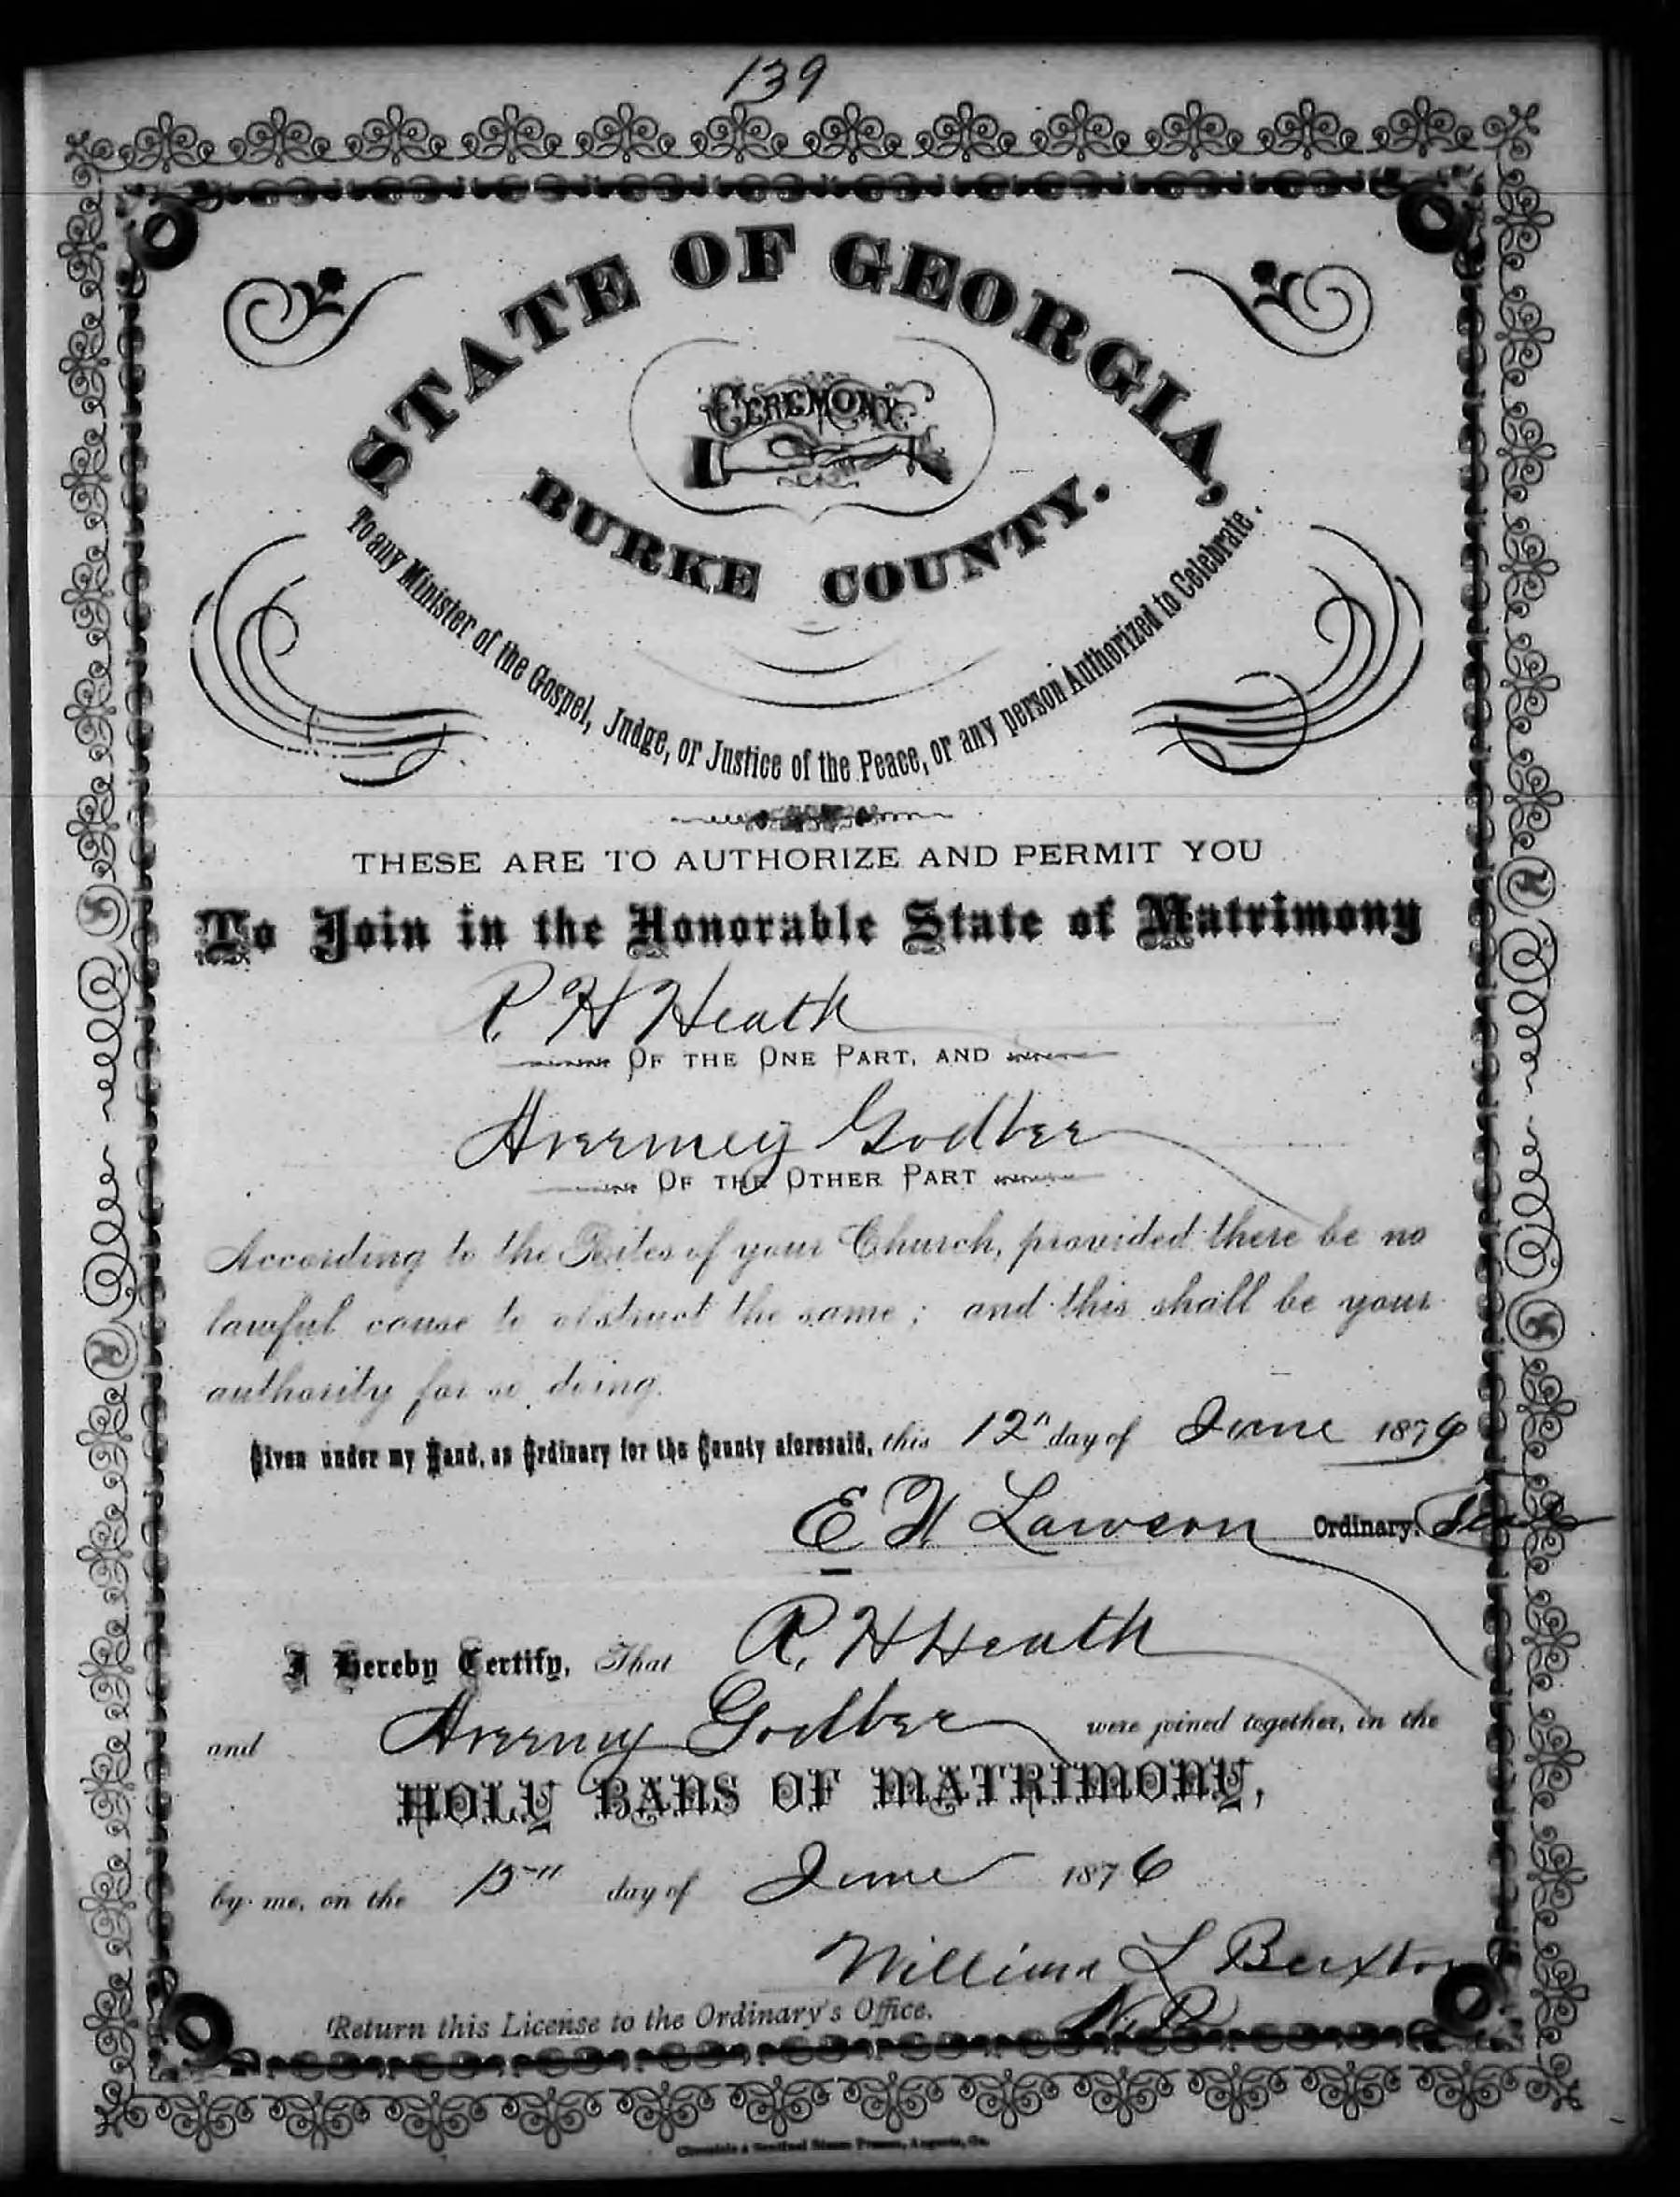 139
STATE OF GEORGIA,
CEREMONY
BURKE COUNTY.
To any Minister of the Gospel, Judge, or Justice of the Peace, or any person Authorized to Celebrate.
THESE ARE TO AUTHORIZE AND PERMIT YOU
To Join in the Honorable State of Matrimony
R. H Heath
OF THE ONE PART, AND
Avermey Godbee
OF THE OTHER PART
According to the Rites of your Church, provided there be no
lawful cause to obstruct the same; and this shall be your
authority for so doing.
Given under my Hand, as Ordinary for the County aforesaid, this 12" day of June 1876
E H Lawson Ordinary.
I Hereby Certify, That R. H Heath
and Averny Godbee were joined together, in the
HOLY BANS OF MATRIMONY,
by me, on the 15" day of June 1876
William L Buxton
N. P.
Return this License to the Ordinary's Office.
Chronicle & Sentinel Steam Presses, Augusta, Ga.